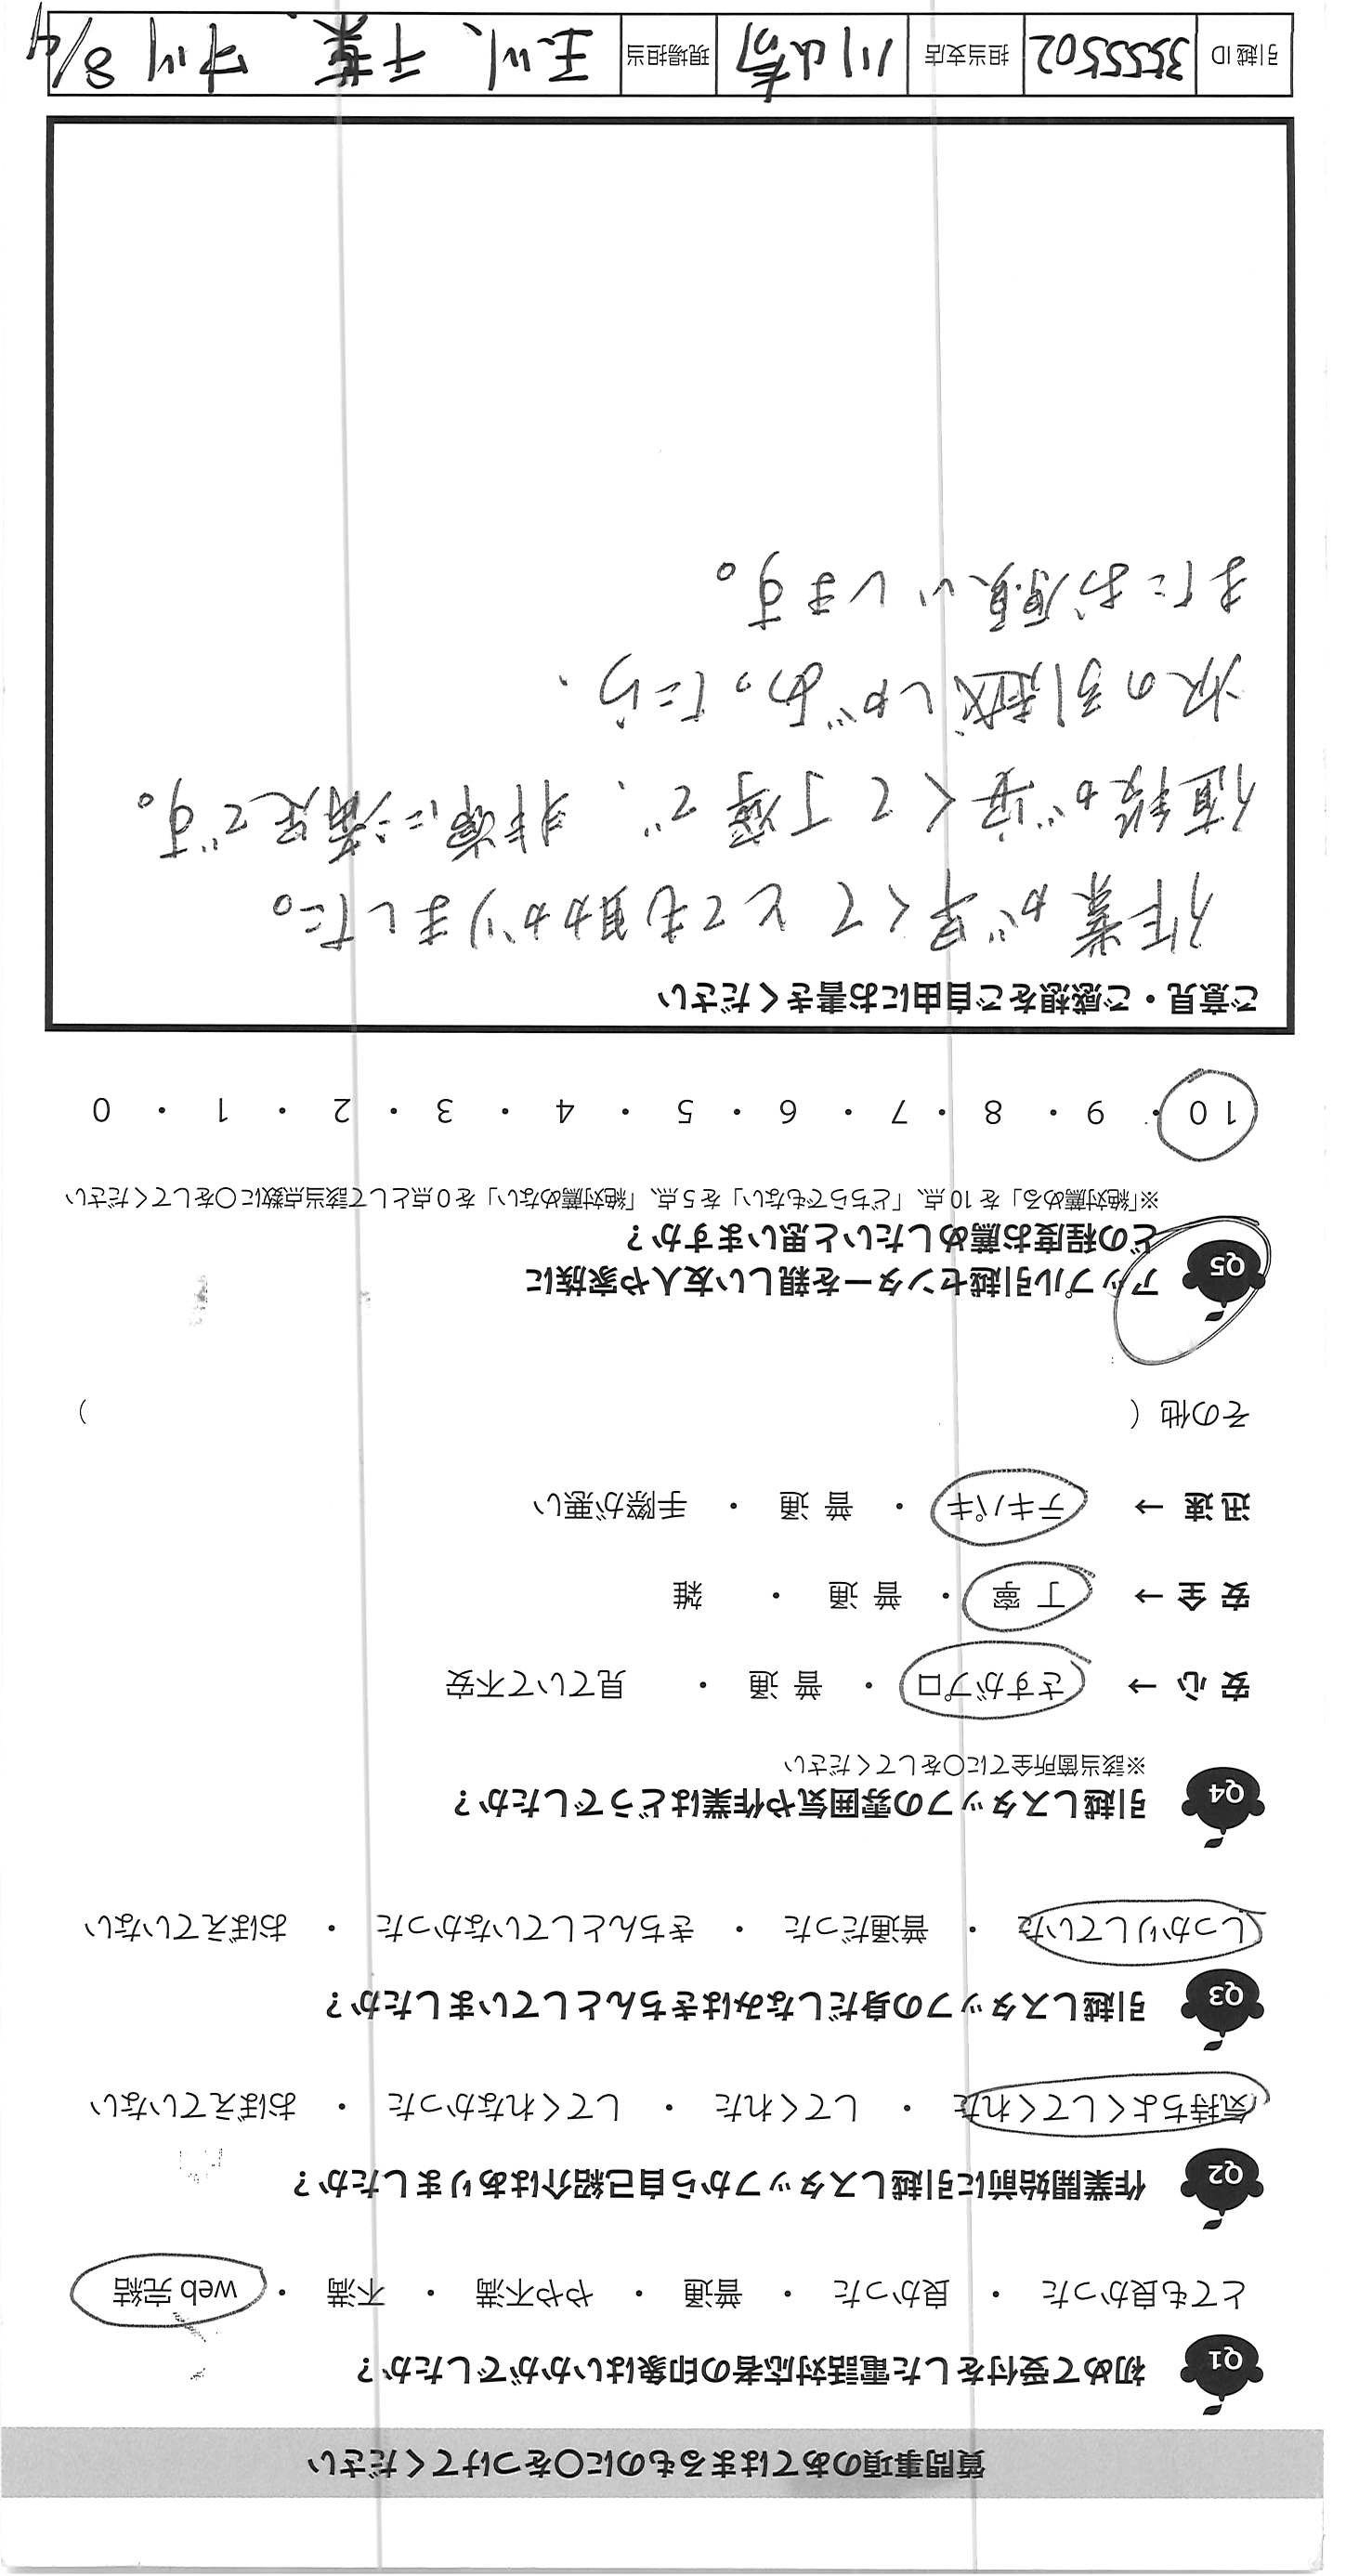 質問事項のあてはまるものに〇をつけてください
Q1 初めて受付をした電話対応者の印象はいかがでしたか？
とても良かった ・ 良かった ・ 普通 ・ やや不満 ・ 不満 ・ web 完結
Q2 作業開始前に引越しスタッフから自己紹介はありましたか？
気持ちよくしてくれた ・ してくれた ・ してくれなかった ・ おぼえていない
Q3 引越しスタッフの身だしなみはきちんとしていましたか？
しっかりしていた ・ 普通だった ・ きちんとしていなかった ・ おぼえていない
Q4 引越しスタッフの雰囲気や作業はどうでしたか？
※該当箇所全てに〇をしてください
安 心 → さすがプロ ・ 普 通 ・ 見ていて不安
安 全 → 丁 寧 ・ 普 通 ・ 雑
迅 速 → テキパキ ・ 普 通 ・ 手際が悪い
その他（ ）
Q5 アップル引越センターを親しい友人や家族に
どの程度お薦めしたいと思いますか？
※「絶対薦める」を 10 点、「どちらでもない」を 5 点、「絶対薦めない」を 0 点として該当点数に〇をしてください
10 ・ 9 ・ 8 ・ 7 ・ 6 ・ 5 ・ 4 ・ 3 ・ 2 ・ 1 ・ 0
ご意見・ご感想をご自由にお書きください
作業が早くてとても助かりました。
値段が安くて丁寧で、非常に満足です。
次の引越しがあったら、
またお願いします。
引越 ID 3555502 担当支店 川崎 現場担当 玉川、千葉、 8/4